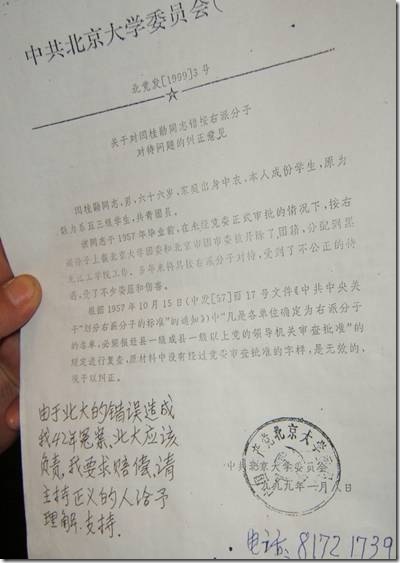 中共北京大学委员会
北党发[1999]3号
关于对闵桂勋同志错按右派分子
对待问题的纠正意见
同志,男,六十六岁,家庭出身中农,本人成份学生,原为
系五三级学生,共青团员。
该同志于1957年毕业前,在未经党委正式审批的情况下,按右
派分子上报北京大学团委和北京市团市委被开除了团籍,分配到黑
龙江工学院工作。多年来将其按右派分子对待,受到了不公正的待
遇,受了不少委屈和伤害。
根据1957年10月15日(中发[57]百17号文件《中共中央关
于“划分右派分子的标准”的通知》)中“凡是各单位确定为右派分子
的名单,必须报经县一级或县一级以上党的领导机关审查批准”的
规定进行复查,原材料中没有经过党委审查批准的字样,是无效的,
现予以纠正。
中共北京大学委员会
一九九九年一月八日
由于北大的错误造成
我42年冤案,北大应该
负责,我要求赔偿,请
主持正义的人给予
理解.支持.
电话:81721739